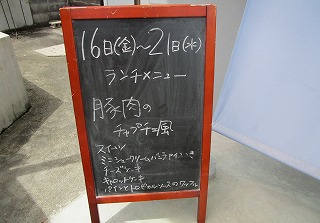 16日(金)〜21日(水)
ランチメニュー
豚肉の
チャプチェ風
スイーツ
ミニシュークリームバニラアイスつき
チーズケーキ
キャロットケーキ
パインとトロピカルソースのワッフル